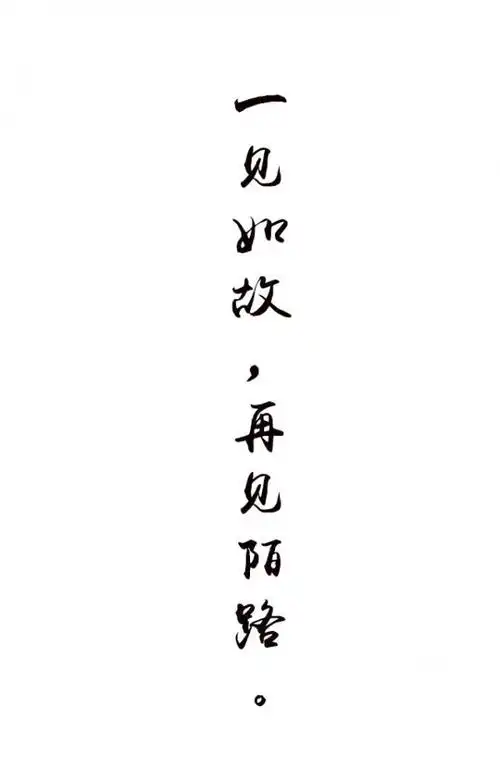 一见如故，再见陌路。